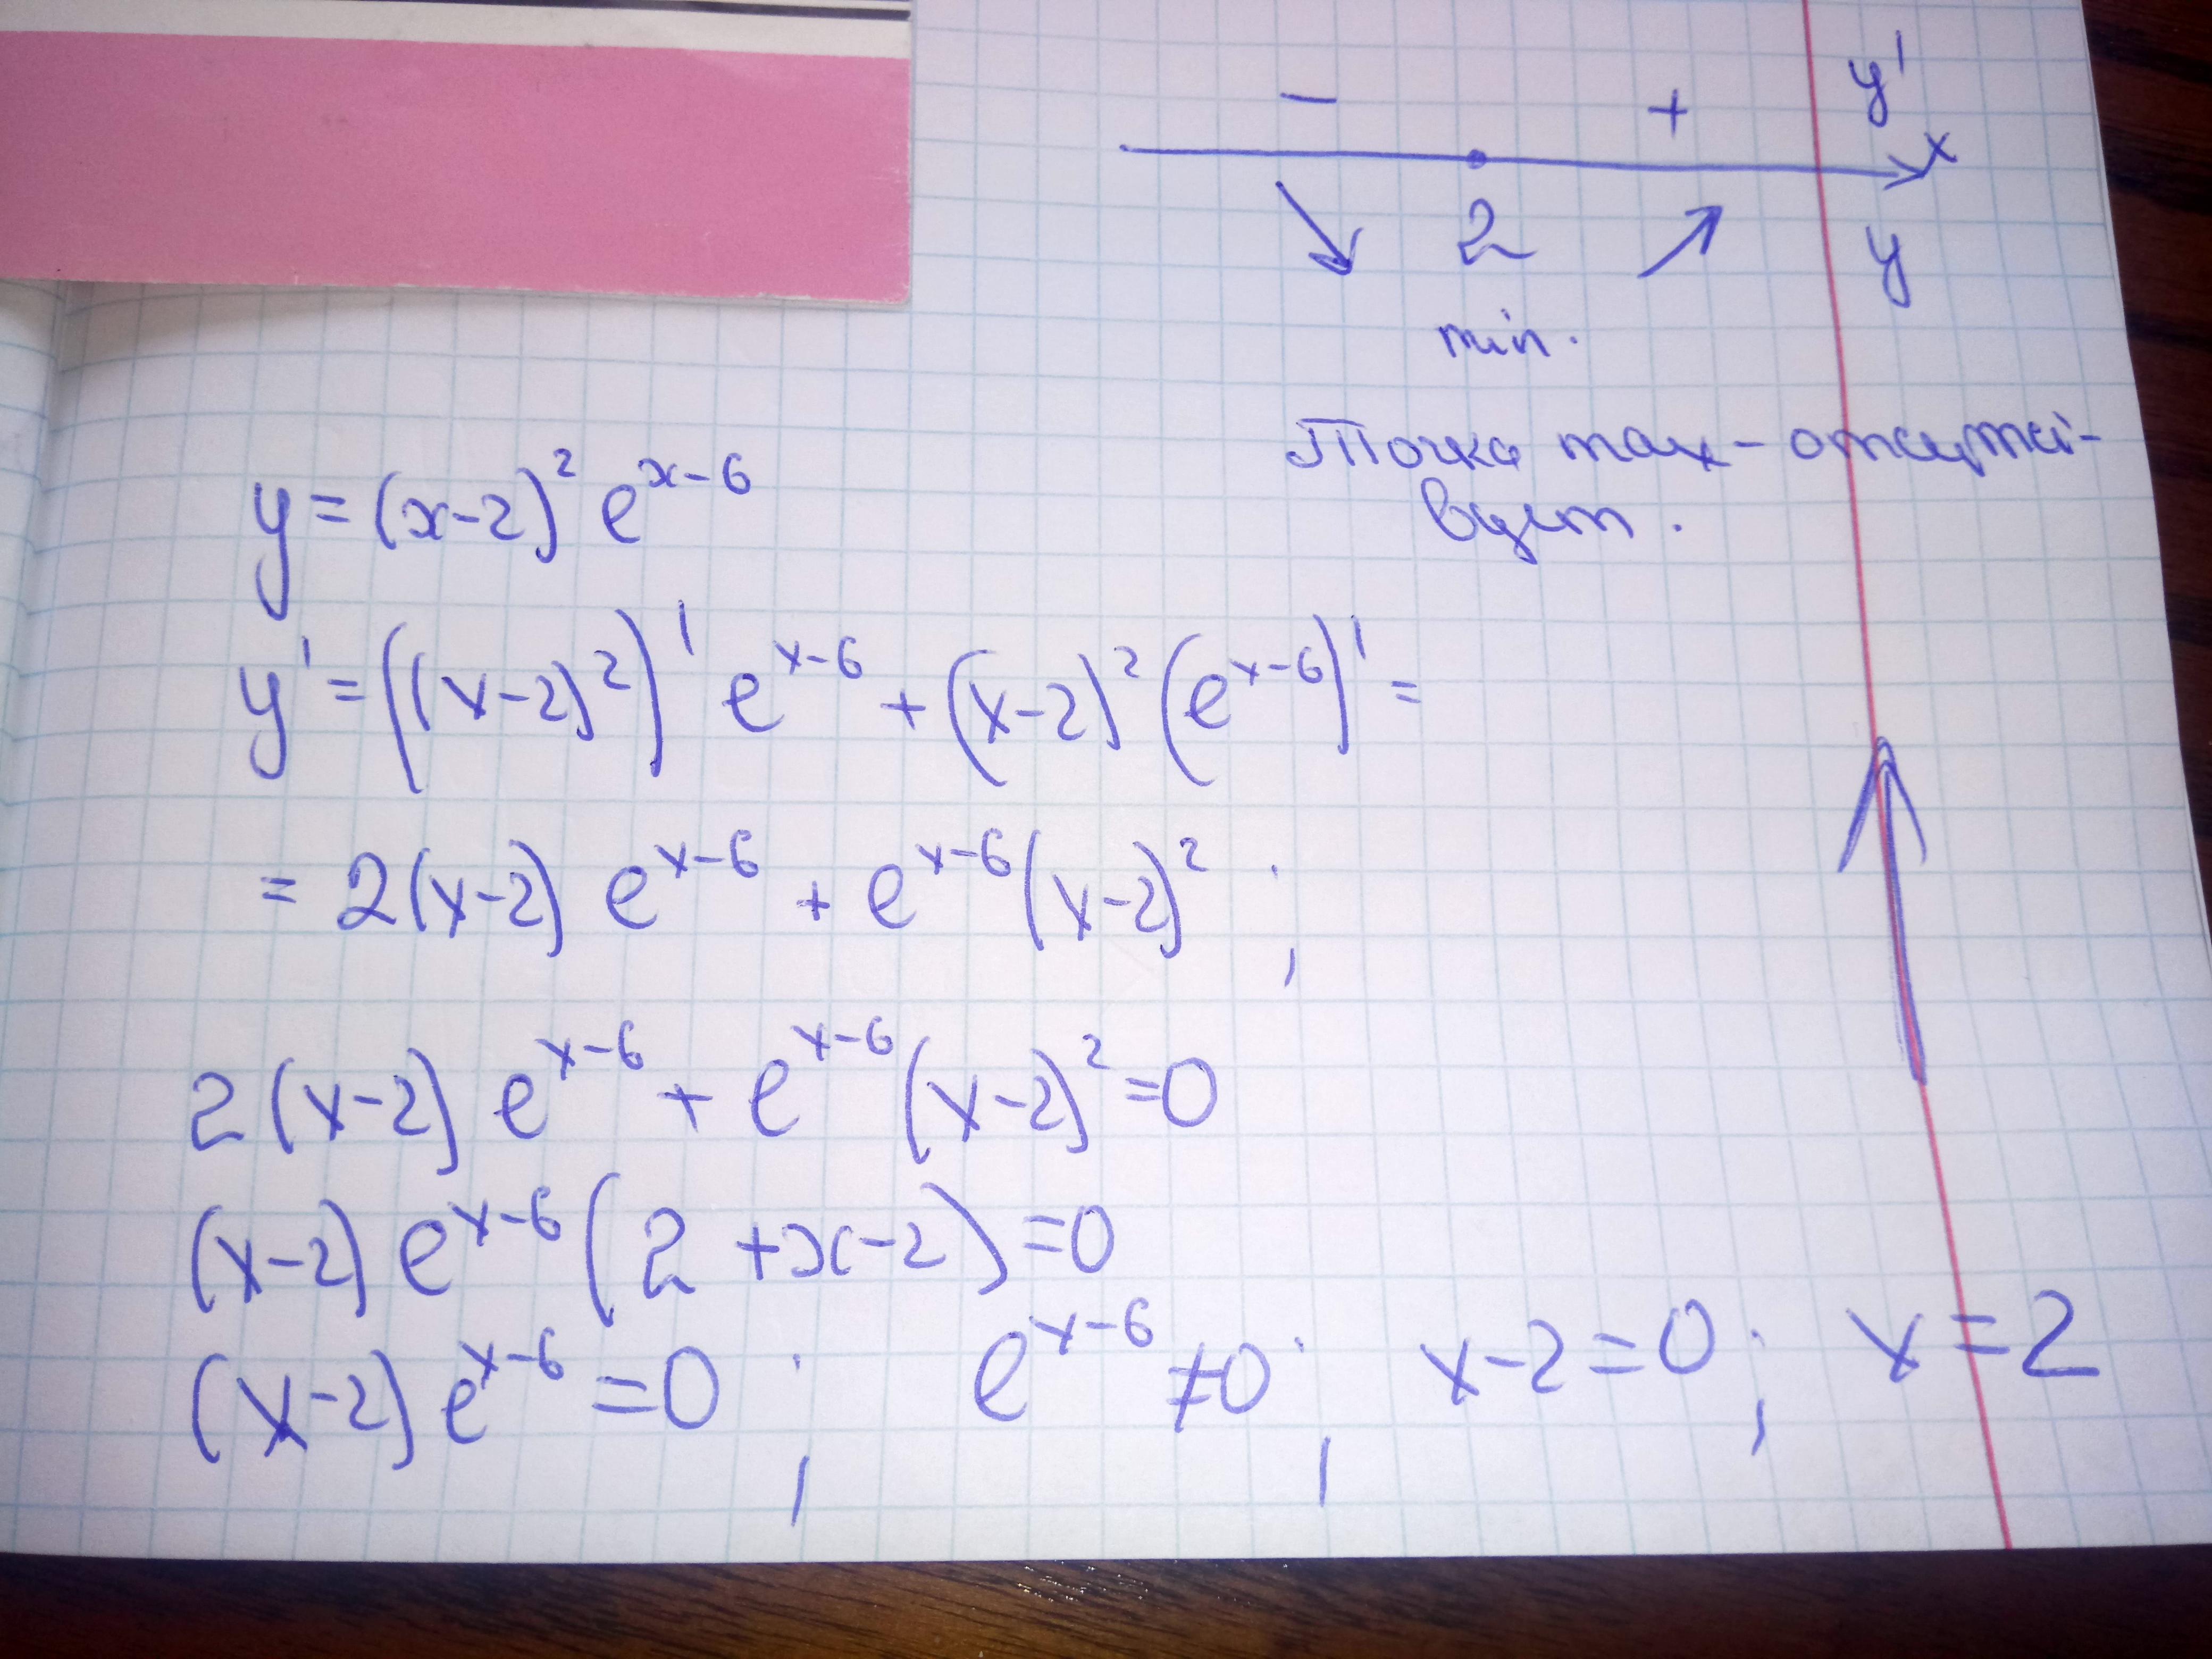 − + y' x
2 y
min.
Точка max - отсутст-
вует.
y = (x-2)² e^(x-6)
y' = ((x-2)²)' e^(x-6) + (x-2)² (e^(x-6))' =
= 2(x-2) e^(x-6) + e^(x-6) (x-2)² ;
2(x-2) e^(x-6) + e^(x-6) (x-2)² = 0
(x-2) e^(x-6) (2 + x - 2) = 0
(x-2) e^(x-6) = 0 ; e^(x-6) ≠ 0 ; x-2 = 0 ; x = 2